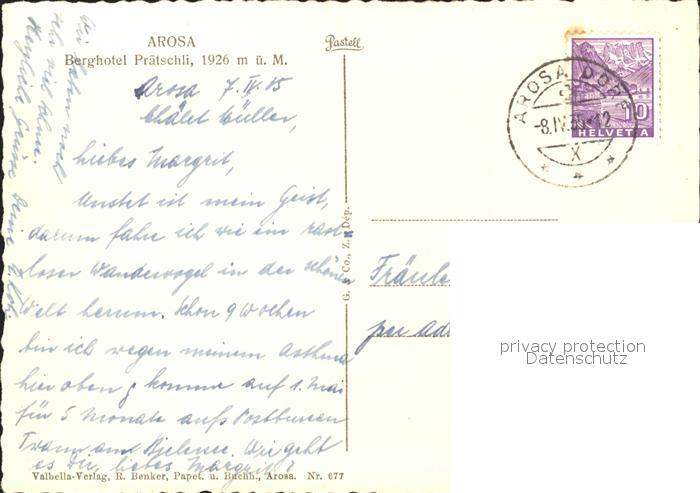 AROSA
Berghotel Prätschli, 1926 m ü. M.
Pastell
Arosa 7.IV.35
Châlet Müller,
Liebes Margrit,
Unstet ist mein Geist,
darum fahre ich wie ein rast
loser Wandervogel in der schönen
Welt herum. Schon 9 Wochen
bin ich wegen meinem Asthma
hier oben & komme auf 1. Mai
für 5 Monate aufs Postbureau
Twann am Bielersee. Wie geht
es Dir, liebes Margrit?
ich viel
Herzliche Grüsse Deine
G. & Co., Z. Dép.
AROSA DORF
-8.IV.35-12
X
10
HELVETIA
Fräule
per Adr
privacy protection
Datenschutz
Valbella-Verlag, R. Benker, Papet. u. Buchh., Arosa. Nr. 677